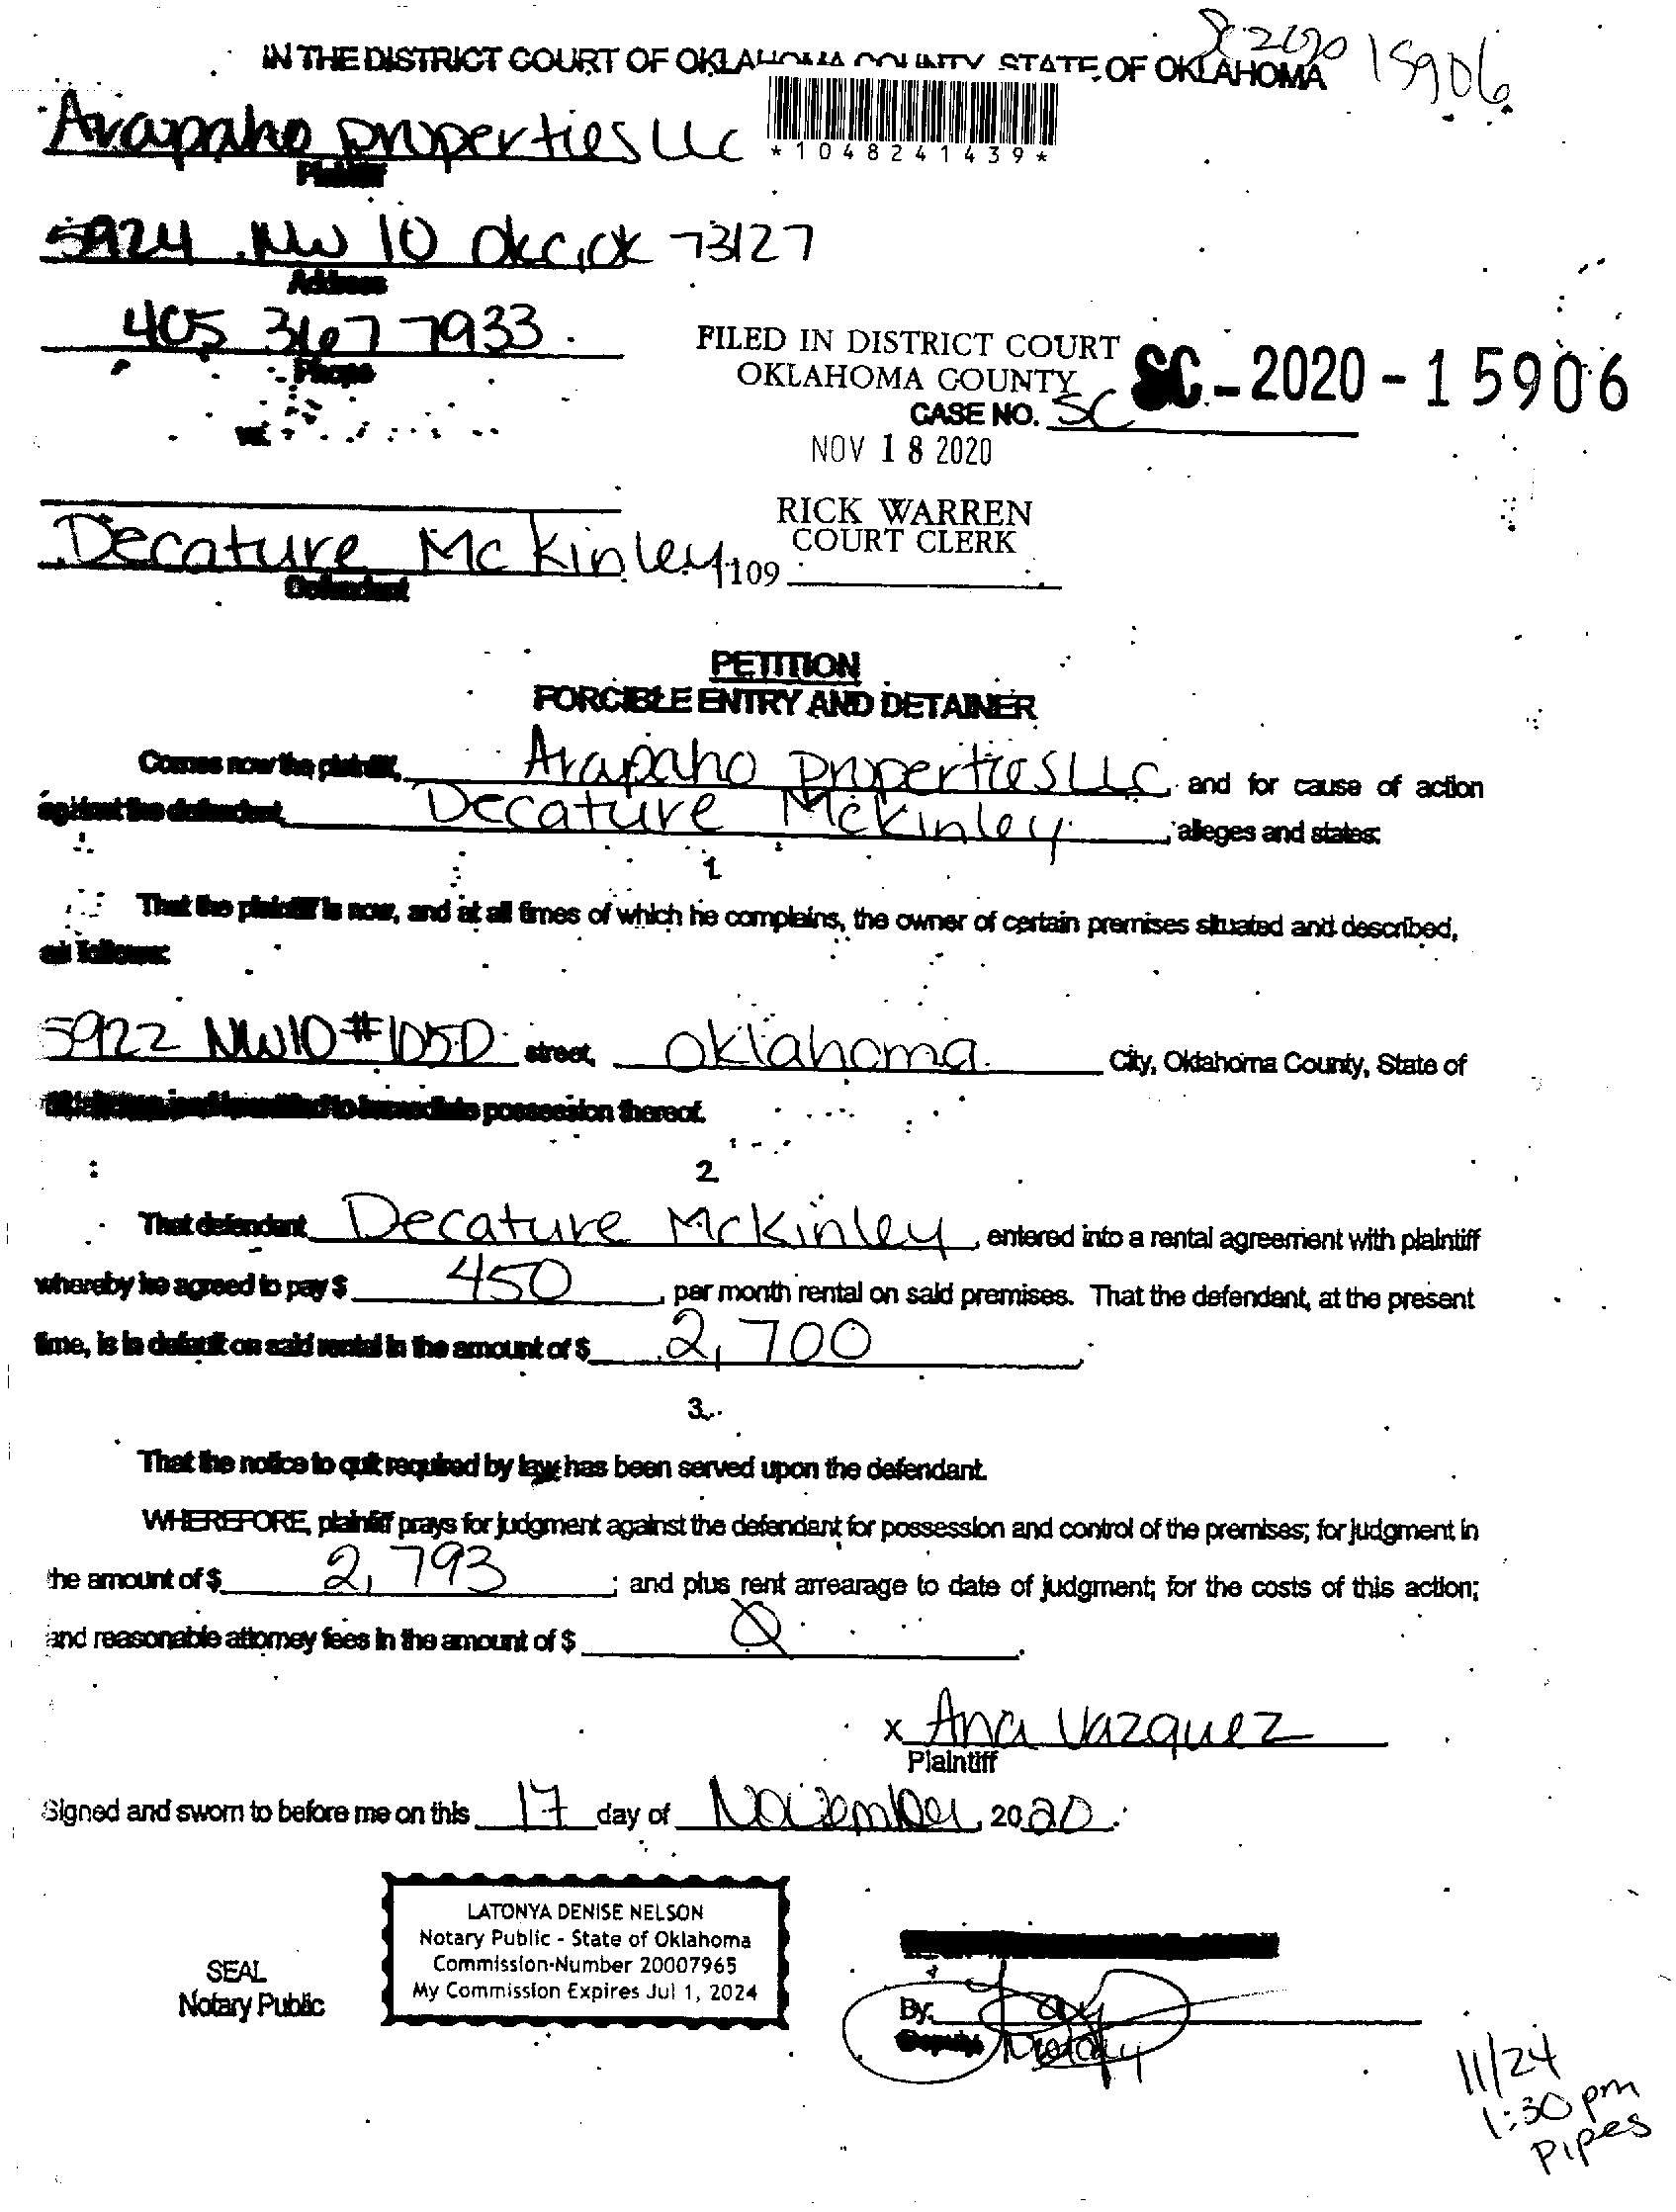 SC 2020 15906
IN THE DISTRICT COURT OF OKLAHOMA COUNTY STATE OF OKLAHOMA
Arapaho properties LLC
*1048241439*
Plaintiff
5924 NW 10 OKC, OK 73127
Address
405 367 7933
Phone
FILED IN DISTRICT COURT
OKLAHOMA COUNTY
SC-2020-15906
CASE NO. SC
vs.
NOV 18 2020
RICK WARREN
COURT CLERK
Decature McKinley
109
Defendant
PETITION
FORCIBLE ENTRY AND DETAINER
Comes now the plaintiff, Arapaho properties LLC and for cause of action
against the defendant, Decature McKinley, alleges and states:
1.
That the plaintiff is now, and at all times of which he complains, the owner of certain premises situated and described,
as follows:
5922 NW10 #105D street, Oklahoma City, Oklahoma County, State of
to immediate possession thereof.
2.
That defendant Decature McKinley, entered into a rental agreement with plaintiff
whereby he agreed to pay $ 450, per month rental on said premises. That the defendant, at the present
time, is in default on said rental in the amount of $ 2,700
3.
That the notice to quit required by law has been served upon the defendant.
WHEREFORE, plaintiff prays for judgment against the defendant for possession and control of the premises; for judgment in
the amount of $ 2,793; and plus rent arrearage to date of judgment; for the costs of this action;
and reasonable attorney fees in the amount of $ Ø.
x Ana Vazquez
Plaintiff
Signed and sworn to before me on this 17 day of November, 2020.
LATONYA DENISE NELSON
Notary Public - State of Oklahoma
Commission Number 20007965
My Commission Expires Jul 1, 2024
SEAL
Notary Public
By:
Deputy Notary
11/24
1:30 pm
Pipes